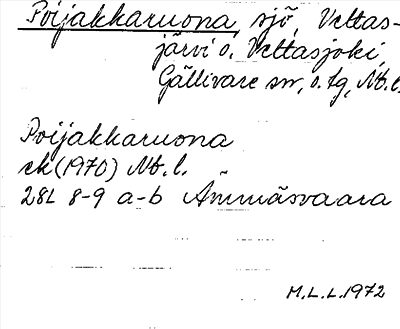 Poijakkaruona, sjö, Vettas-
järvi o. Vettasjoki,
Gällivare sn, o. tg, Nb.l.
Poijakkaruona
ek (1970) Nb.l.
28L 8-9 a-b Ämmäsvaara
M.L.L. 1972